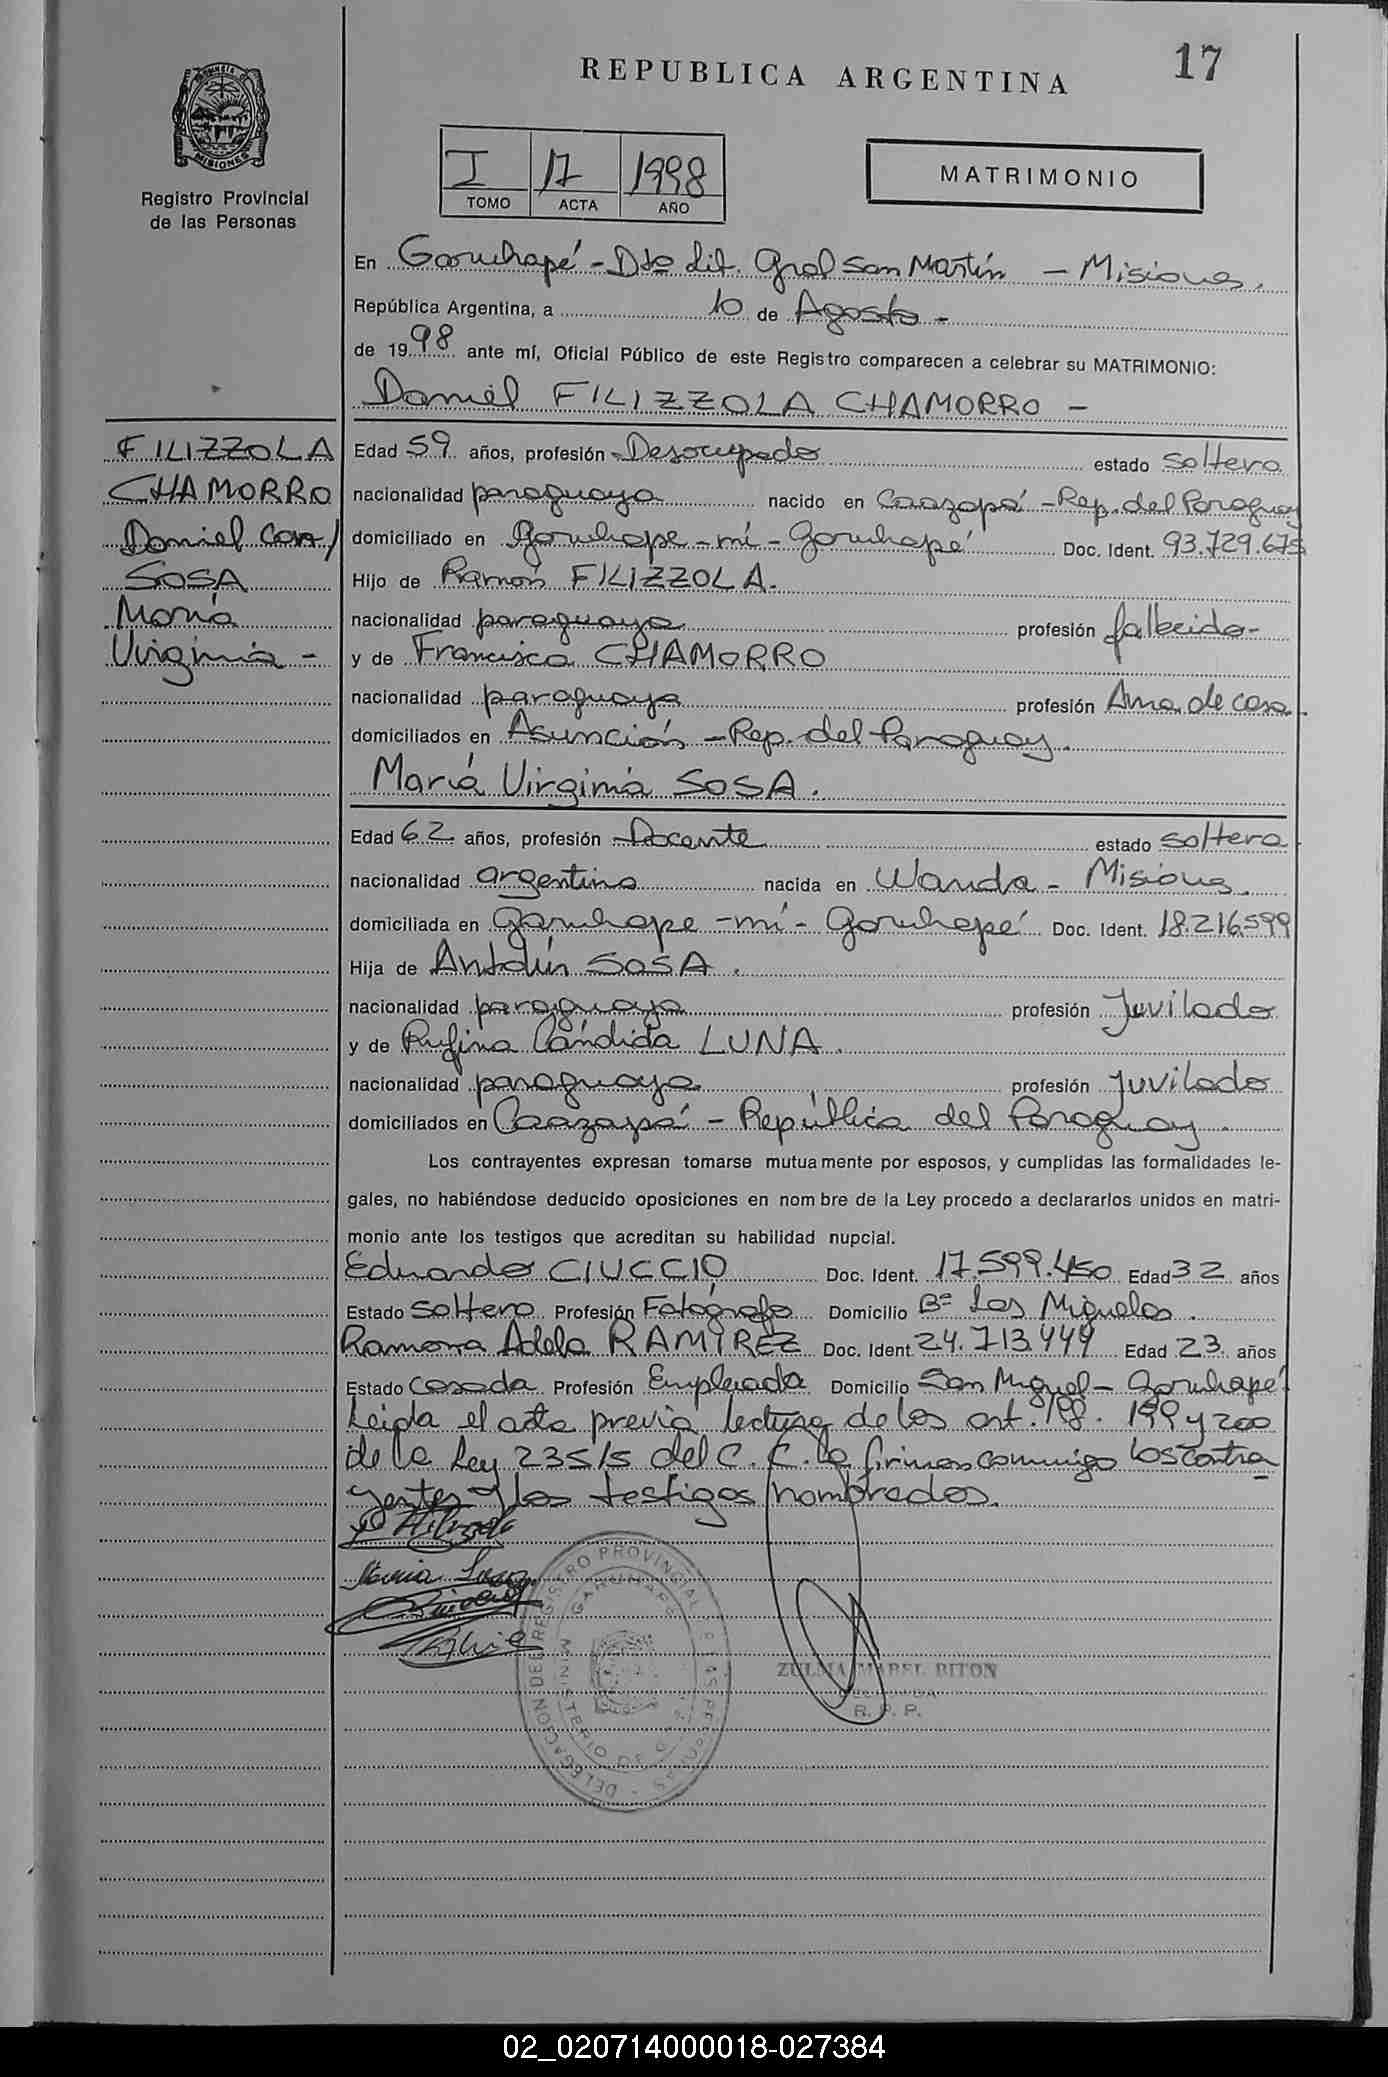 17
REPUBLICA ARGENTINA
PROVINCIA DE
MISIONES
Registro Provincial
de las Personas
I 17 1998
TOMO ACTA AÑO
MATRIMONIO
En Garuhapé - Dto Lib. Gral San Martín - Misiones.
República Argentina, a 10 de Agosto -
de 1998 ante mí, Oficial Público de este Registro comparecen a celebrar su MATRIMONIO:
Daniel FILIZZOLA CHAMORRO -
FILIZZOLA
CHAMORRO
Daniel con/
SOSA
María
Virginia -
Edad 59 años, profesión Desocupado estado soltero
nacionalidad paraguaya nacido en Caazapá - Rep. del Paraguay
domiciliado en Garuhape-mí - Garuhapé Doc. Ident. 93.729.675
Hijo de Ramón FILIZZOLA.
nacionalidad paraguaya profesión fallecido-
y de Francisca CHAMORRO
nacionalidad paraguaya profesión Ama de casa
domiciliados en Asunción - Rep. del Paraguay.
María Virginia SOSA.
Edad 62 años, profesión Docente estado soltera
nacionalidad argentina nacida en Wanda - Misiones.
domiciliada en Garuhape-mí - Garuhapé Doc. Ident. 18.216.599
Hija de Antolín SOSA.
nacionalidad paraguaya profesión Juvilado
y de Rufina Cándida LUNA.
nacionalidad paraguaya profesión Juvilada
domiciliados en Caazapá - República del Paraguay.
Los contrayentes expresan tomarse mutuamente por esposos, y cumplidas las formalidades le-
gales, no habiéndose deducido oposiciones en nombre de la Ley procedo a declararlos unidos en matri-
monio ante los testigos que acreditan su habilidad nupcial.
Eduardo CIUCCIO Doc. Ident. 17.599.450 Edad 32 años
Estado soltero Profesión Fotógrafo Domicilio Bº Los Miguelos.
Ramona Adela RAMIREZ Doc. Ident. 24.713.449 Edad 23 años
Estado casada Profesión Empleada Domicilio San Miguel - Garuhapé
Leida el acta previa lectura de los art. 198. 199 y 200
de la Ley 23515 del C. C. la firman conmigo los contra
yentes y los testigos nombrados.
DELEGACION DEL REGISTRO PROVINCIAL DE LAS PERSONAS
GARUHAPE
MINISTERIO DE
ZULMA MABEL BITON
DELEGADA
R. P. P.
02_020714000018-027384